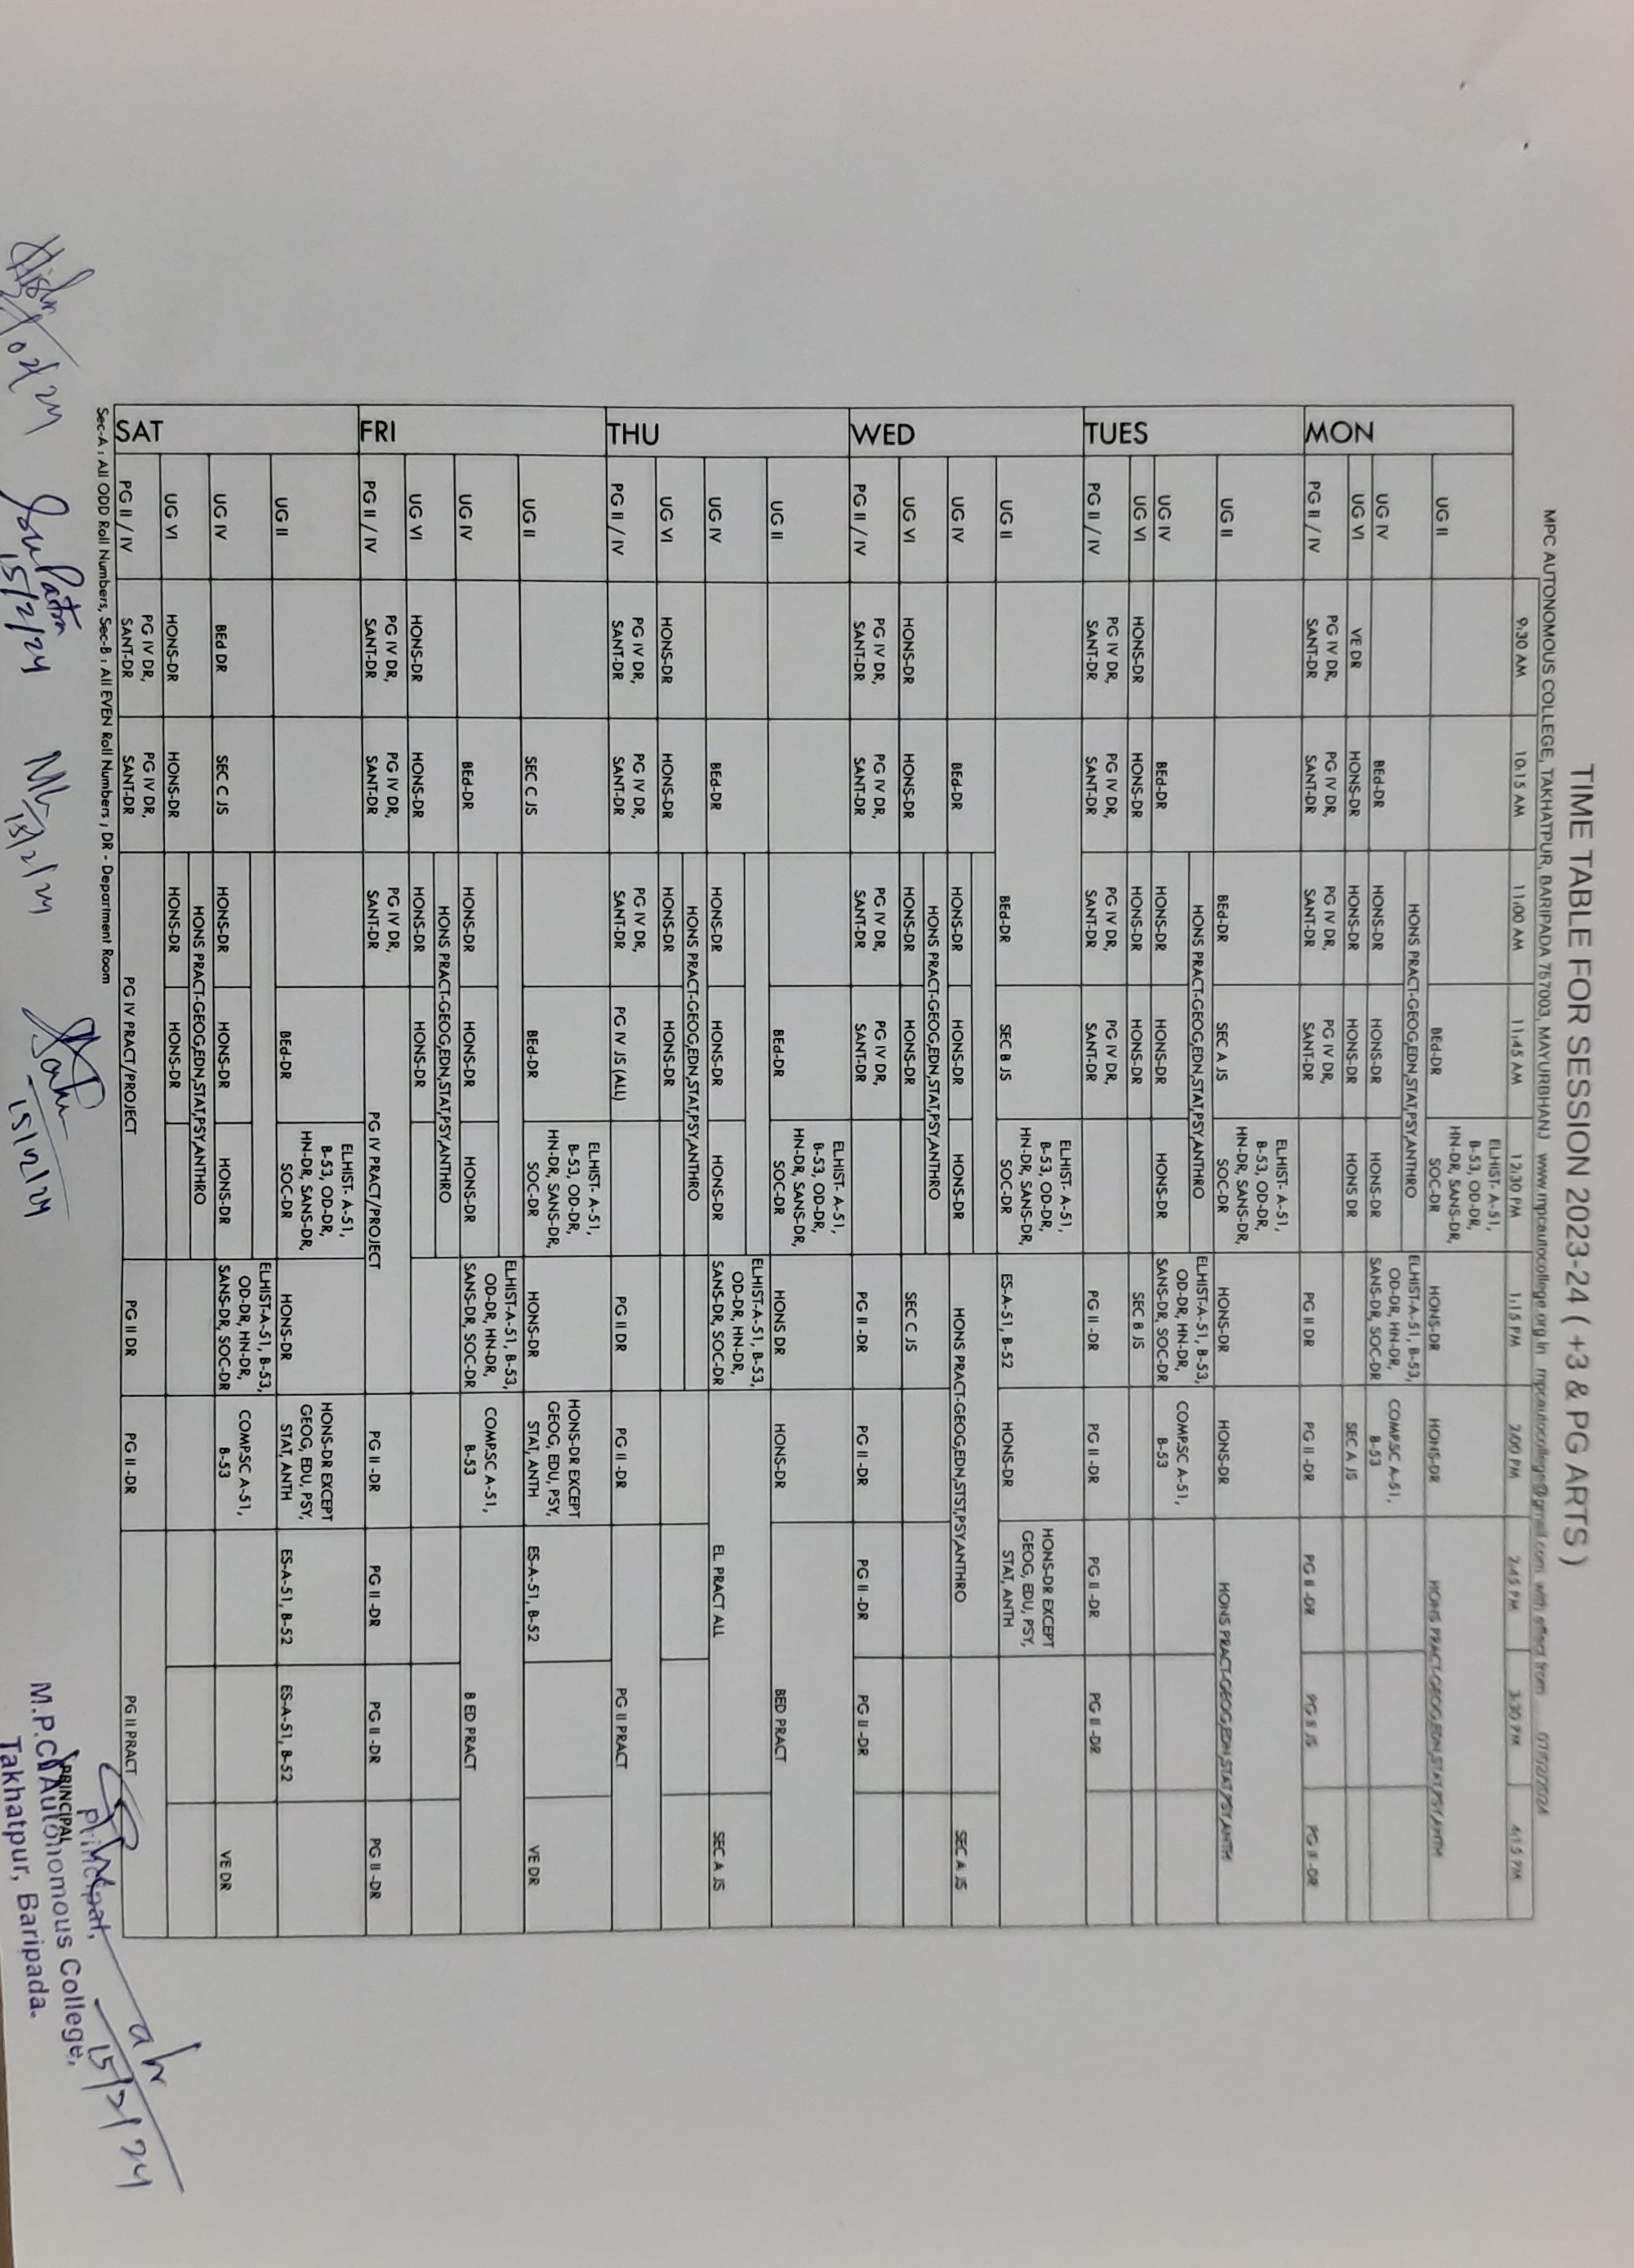 TIME TABLE FOR SESSION 2023-24 ( +3 & PG ARTS )
MPC AUTONOMOUS COLLEGE, TAKHATPUR, BARIPADA 757003, MAYURBHANJ www.mpcautocollege.org.in mpcautocollege@gmail.com with effect from
9:30 AM 10:15 AM 11:00 AM 11:45 AM 12:30 PM 1:15 PM 2:00 PM 2:45 PM 3:30 PM 4:15 PM
MON
UG II BEd-DR ELHIST- A-51, B-53, OD-DR, HN-DR, SANS-DR, SOC-DR HONS-DR HONS-DR HONS PRACT-GEOG,EDN,STAT,PSY,ANTH
HONS PRACT-GEOG,EDN,STAT,PSY,ANTHRO
UG IV BEd-DR HONS-DR HONS-DR HONS-DR ELHIST-A-51, B-53, OD-DR, HN-DR, SANS-DR, SOC-DR COMP.SC A-51, B-53
UG VI VE DR HONS-DR HONS-DR HONS-DR HONS DR SEC A JS
PG II / IV PG IV DR, SANT-DR PG IV DR, SANT-DR PG IV DR, SANT-DR PG IV DR, SANT-DR PG II DR PG II -DR PG II -DR PG II JS PG II -DR
TUES
UG II BEd-DR SEC A JS ELHIST- A-51, B-53, OD-DR, HN-DR, SANS-DR, SOC-DR HONS-DR HONS-DR HONS PRACT-GEOG,EDN,STAT,PSY,ANTH
HONS PRACT-GEOG,EDN,STAT,PSY,ANTHRO
UG IV BEd-DR HONS-DR HONS-DR HONS-DR ELHIST-A-51, B-53, OD-DR, HN-DR, SANS-DR, SOC-DR COMP.SC A-51, B-53
UG VI HONS-DR HONS-DR HONS-DR HONS-DR SEC B JS
PG II / IV PG IV DR, SANT-DR PG IV DR, SANT-DR PG IV DR, SANT-DR PG IV DR, SANT-DR PG II -DR PG II -DR PG II -DR PG II -DR
WED
UG II BEd-DR SEC B JS ELHIST- A-51, B-53, OD-DR, HN-DR, SANS-DR, SOC-DR ES-A-51, B-52 HONS-DR HONS-DR EXCEPT GEOG, EDU, PSY, STAT, ANTH
UG IV BEd-DR HONS-DR HONS-DR HONS-DR HONS PRACT-GEOG,EDN,STST,PSY,ANTHRO SEC A JS
HONS PRACT-GEOG,EDN,STAT,PSY,ANTHRO
UG VI HONS-DR HONS-DR HONS-DR HONS-DR SEC C JS
PG II / IV PG IV DR, SANT-DR PG IV DR, SANT-DR PG IV DR, SANT-DR PG IV DR, SANT-DR PG II -DR PG II -DR PG II -DR PG II -DR
THU
UG II BEd-DR ELHIST- A-51, B-53, OD-DR, HN-DR, SANS-DR, SOC-DR HONS DR HONS-DR BED PRACT
UG IV BEd-DR HONS-DR HONS-DR HONS-DR ELHIST-A-51, B-53, OD-DR, HN-DR, SANS-DR, SOC-DR EL PRACT ALL SEC A JS
HONS PRACT-GEOG,EDN,STAT,PSY,ANTHRO
UG VI HONS-DR HONS-DR HONS-DR HONS-DR
PG II / IV PG IV DR, SANT-DR PG IV DR, SANT-DR PG IV DR, SANT-DR PG IV JS (ALL) PG II DR PG II -DR PG II PRACT
FRI
UG II SEC C JS BEd-DR ELHIST- A-51, B-53, OD-DR, HN-DR, SANS-DR, SOC-DR HONS-DR HONS-DR EXCEPT GEOG, EDU, PSY, STAT, ANTH ES-A-51, B-52 VE DR
UG IV BEd-DR HONS-DR HONS-DR HONS-DR ELHIST-A-51, B-53, OD-DR, HN-DR, SANS-DR, SOC-DR COMP.SC A-51, B-53 B ED PRACT
HONS PRACT-GEOG,EDN,STAT,PSY,ANTHRO
UG VI HONS-DR HONS-DR HONS-DR HONS-DR
PG II / IV PG IV DR, SANT-DR PG IV DR, SANT-DR PG IV DR, SANT-DR PG IV PRACT/PROJECT PG II -DR PG II -DR PG II -DR PG II -DR
SAT
UG II BEd-DR ELHIST- A-51, B-53, OD-DR, HN-DR, SANS-DR, SOC-DR HONS-DR HONS-DR EXCEPT GEOG, EDU, PSY, STAT, ANTH ES-A-51, B-52 ES-A-51, B-52
UG IV BEd DR SEC C JS HONS-DR HONS-DR HONS-DR ELHIST-A-51, B-53, OD-DR, HN-DR, SANS-DR, SOC-DR COMP.SC A-51, B-53 VE DR
HONS PRACT-GEOG,EDN,STAT,PSY,ANTHRO
UG VI HONS-DR HONS-DR HONS-DR HONS-DR
PG II / IV PG IV DR, SANT-DR PG IV DR, SANT-DR PG IV PRACT/PROJECT PG II DR PG II -DR PG II PRACT
Sec-A : All ODD Roll Numbers, Sec-B : All EVEN Roll Numbers ; DR - Department Room
15/2/24
15/2/24
15/2/24
15/2/24
PRINCIPAL
Principal,
M.P.C. Autonomous College,
Takhatpur, Baripada.